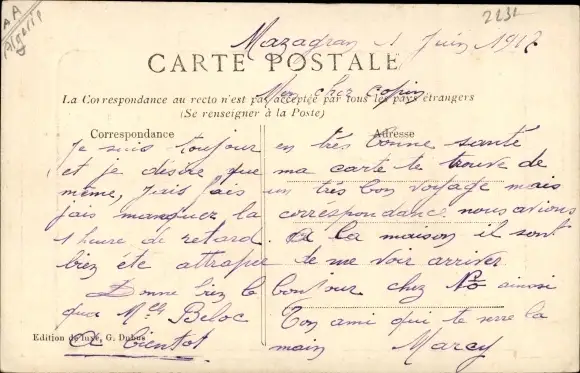 AA
Algérie
2231
Mazagran 1 Juin 1917
CARTE POSTALE
Mon cher copin
La Correspondance au recto n'est pas acceptée par tous les pays étrangers
(Se renseigner à la Poste)
Correspondance
Adresse
Je suis toujour en très bonne santé
et je désire que ma carte te trouve de
même, jais fais un très bon voyage mais
jais manquer la corréspondance nous avions
1 heure de retard. A la maison il sont
biez éte attraper de me voir arriver
Donne biez le bonjour chez Vo ainsi
qua Melle Beloc Ton ami qui te serre la
A bientot main Marcy
Edition de luxe, G. Dubus